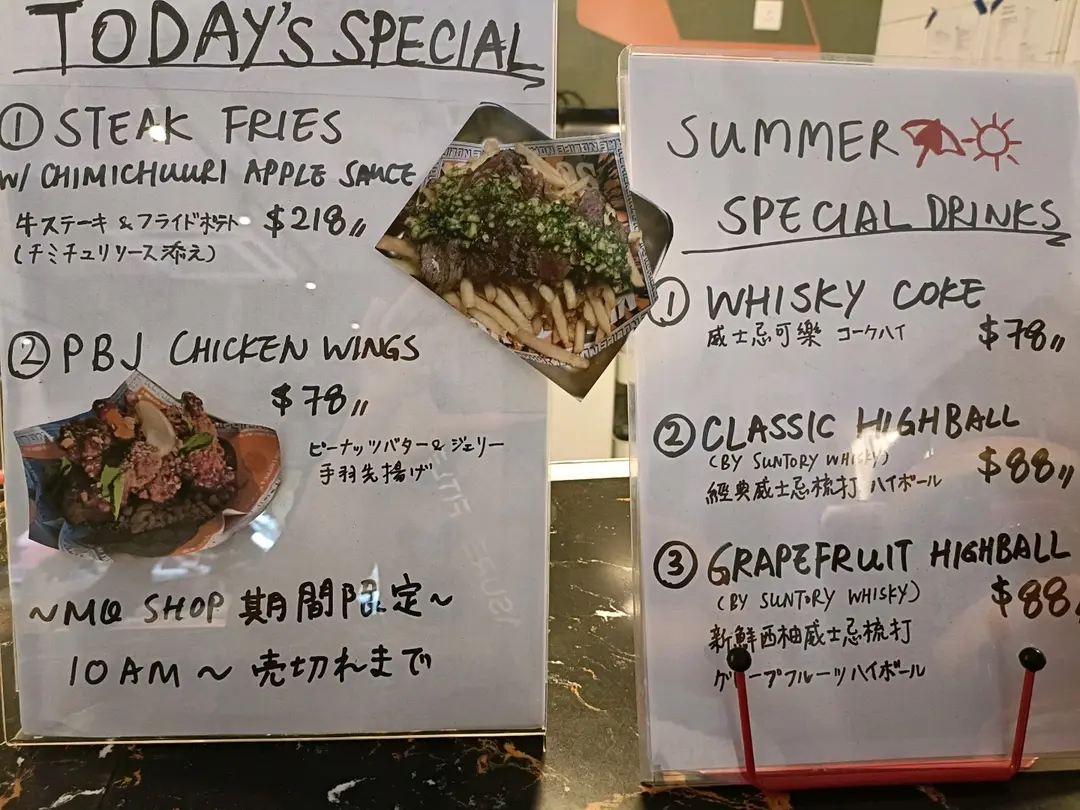 TODAY'S SPECIAL
① STEAK FRIES
W/ CHIMICHUURI APPLE SAUCE
牛ステーキ & フライドポテト $218,,
(チミチュリソース添え)
② PBJ CHICKEN WINGS
$78,,
ピーナッツバター & ジェリー
手羽先揚げ
~MQ SHOP 期間限定~
10AM ~ 売切れまで
SUMMER
SPECIAL DRINKS
① WHISKY COKE
威士忌可樂 コークハイ $78,,
② CLASSIC HIGHBALL
(BY SUNTORY WHISKY) $88,,
經典威士忌梳打 ハイボール
③ GRAPEFRUIT HIGHBALL
(BY SUNTORY WHISKY) $88,
新鮮西柚威士忌梳打
グレープフルーツハイボール